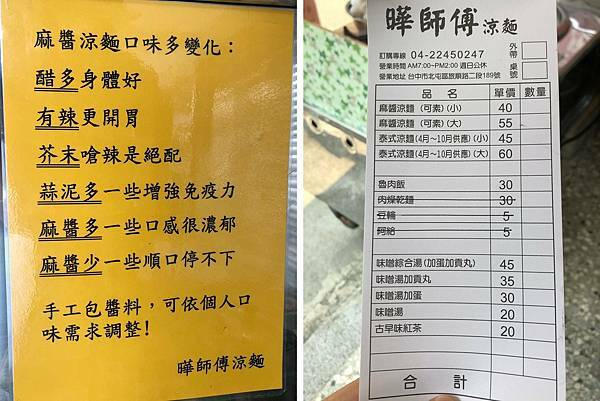 麻醬涼麵口味多變化：
醋多身體好
有辣更開胃
芥末嗆辣是絕配
蒜泥多一些增強免疫力
麻醬多一些口感很濃郁
麻醬少一些順口停不下
手工包醬料，可依個人口
味需求調整!
曄師傅涼麵
曄師傅涼麵
訂購專線 04-22450247
營業時間 AM7:00~PM2:00 週日公休
營業地址 台中市北屯區旅順路二段189號
外帶
桌號
品名 單價 數量
麻醬涼麵 (可素)(小) 40
麻醬涼麵 (可素)(大) 55
泰式涼麵(4月~10月供應)(小) 45
泰式涼麵(4月~10月供應)(大) 60
魯肉飯 30
肉燥乾麵 30
豆輪 5
阿給 5
味噌綜合湯(加蛋加貢丸) 45
味噌湯加貢丸 35
味噌湯加蛋 30
味噌湯 20
古早味紅茶 20
合計